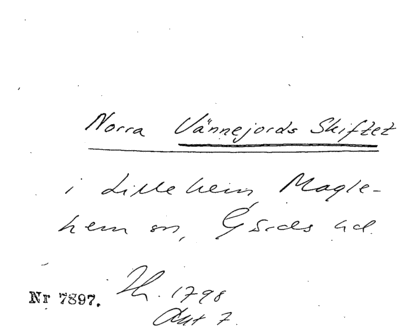 Norra Vännejords Skiftet
i Lillehem, Magle-
hem sn, Gärds hd.
Nr 7897. Th. 1798
Akt 7.